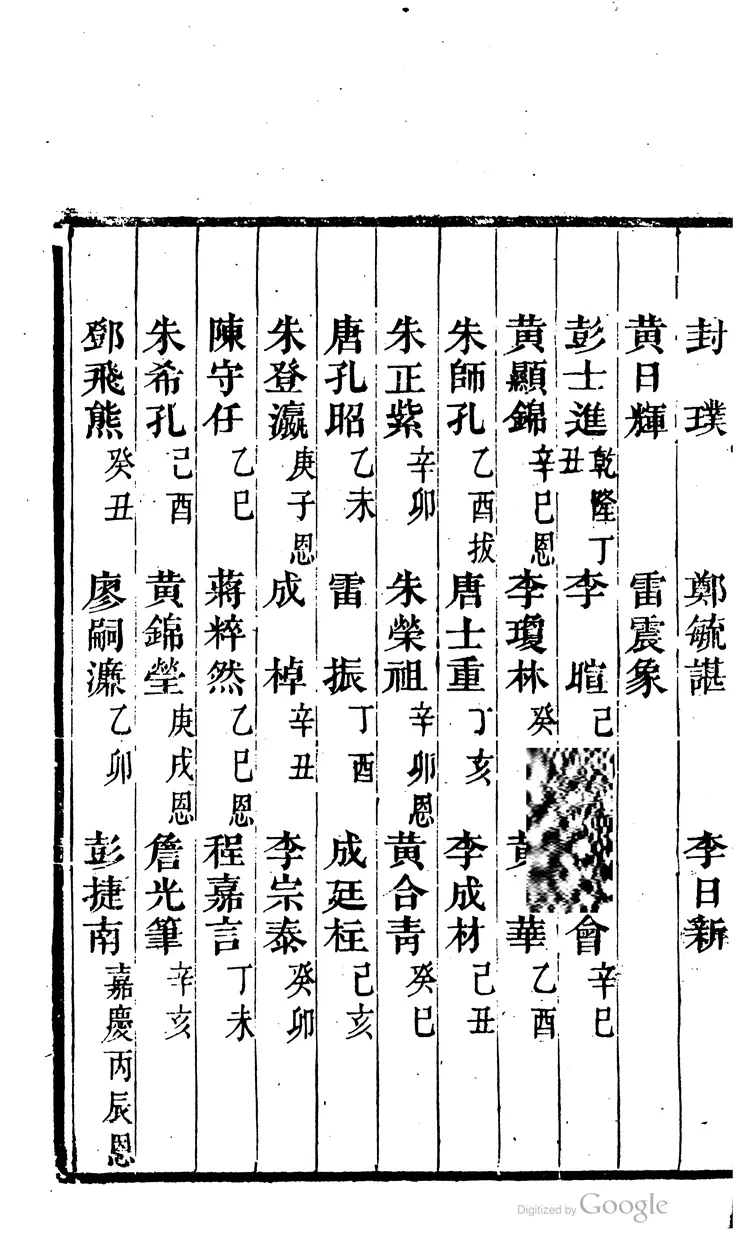 封璞 鄭毓諶 李日新
黃日輝 雷震象
彭士進乾隆丁丑 李暄己 會辛巳
黃顯錦辛巳恩 李瓊林癸 華乙酉
朱師孔乙酉拔 唐士重丁亥 李成材己丑
朱正紫辛卯 朱榮祖辛卯恩 黃合青癸巳
唐孔昭乙未 雷振丁酉 成廷柱己亥
朱登瀛庚子恩 成棹辛丑 李宗泰癸卯
陳守任乙巳 蔣粹然乙巳恩 程嘉言丁未
朱希孔己酉 黃錦瑩庚戌恩 詹光筆辛亥
鄧飛熊癸丑 廖嗣濂乙卯 彭捷南嘉慶丙辰恩
Digitized by Google